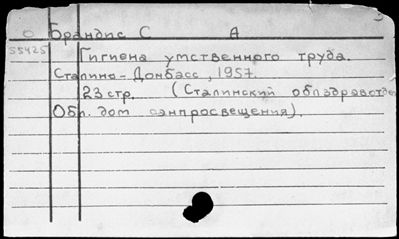 Брандис С А
55425
Гигиена умственного труда.
Сталино-Донбасс, 1957.
23 стр. (Сталинский облздравотде
Обл. дом санпросвещения).